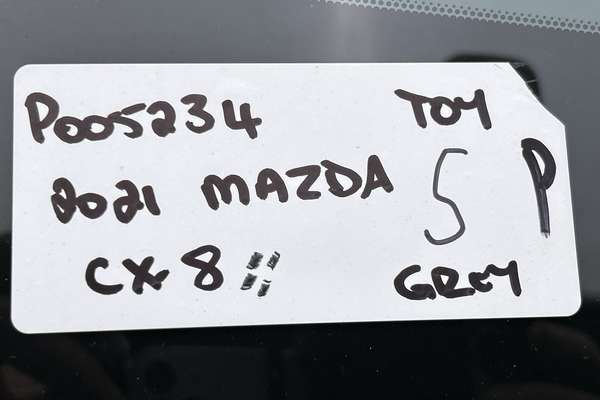 P005234 TOY
2021 MAZDA 5 P
CX-8 GREY